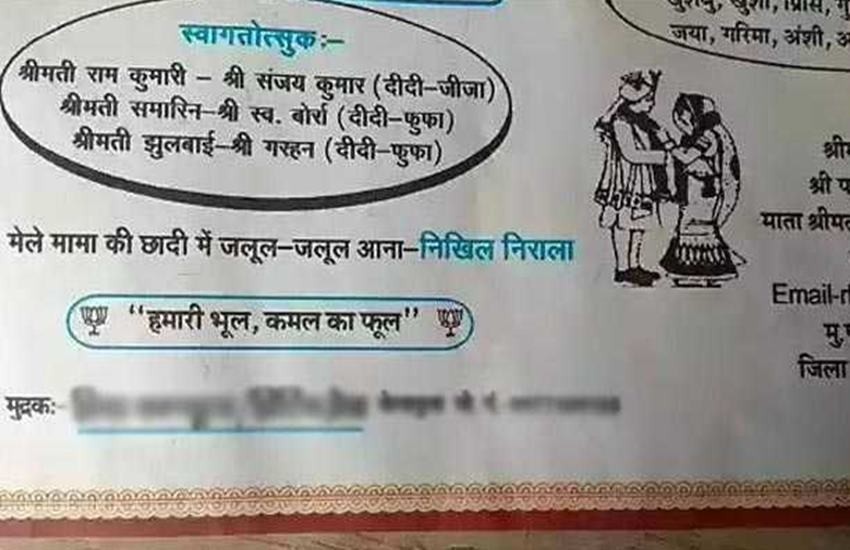 स्वागतोत्सुक:–
श्रीमती राम कुमारी – श्री संजय कुमार (दीदी–जीजा)
श्रीमती समारिन–श्री स्व. बोर्रा (दीदी–फुफा)
श्रीमती झुलबाई–श्री गरहन (दीदी–फुफा)
मेले मामा की छादी में जलूल–जलूल आना–निखिल निराला
"हमारी भूल, कमल का फूल"
मुद्रक:–
खुशबु, खुशी, प्रिंस,
जया, गरिमा, अंशी,
श्री
माता
Email-
जिला